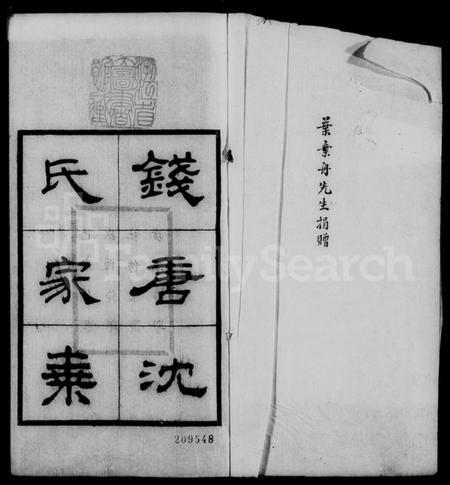 葉葉舟先生捐贈
錢唐沈
氏家乘
209548
FamilySearch